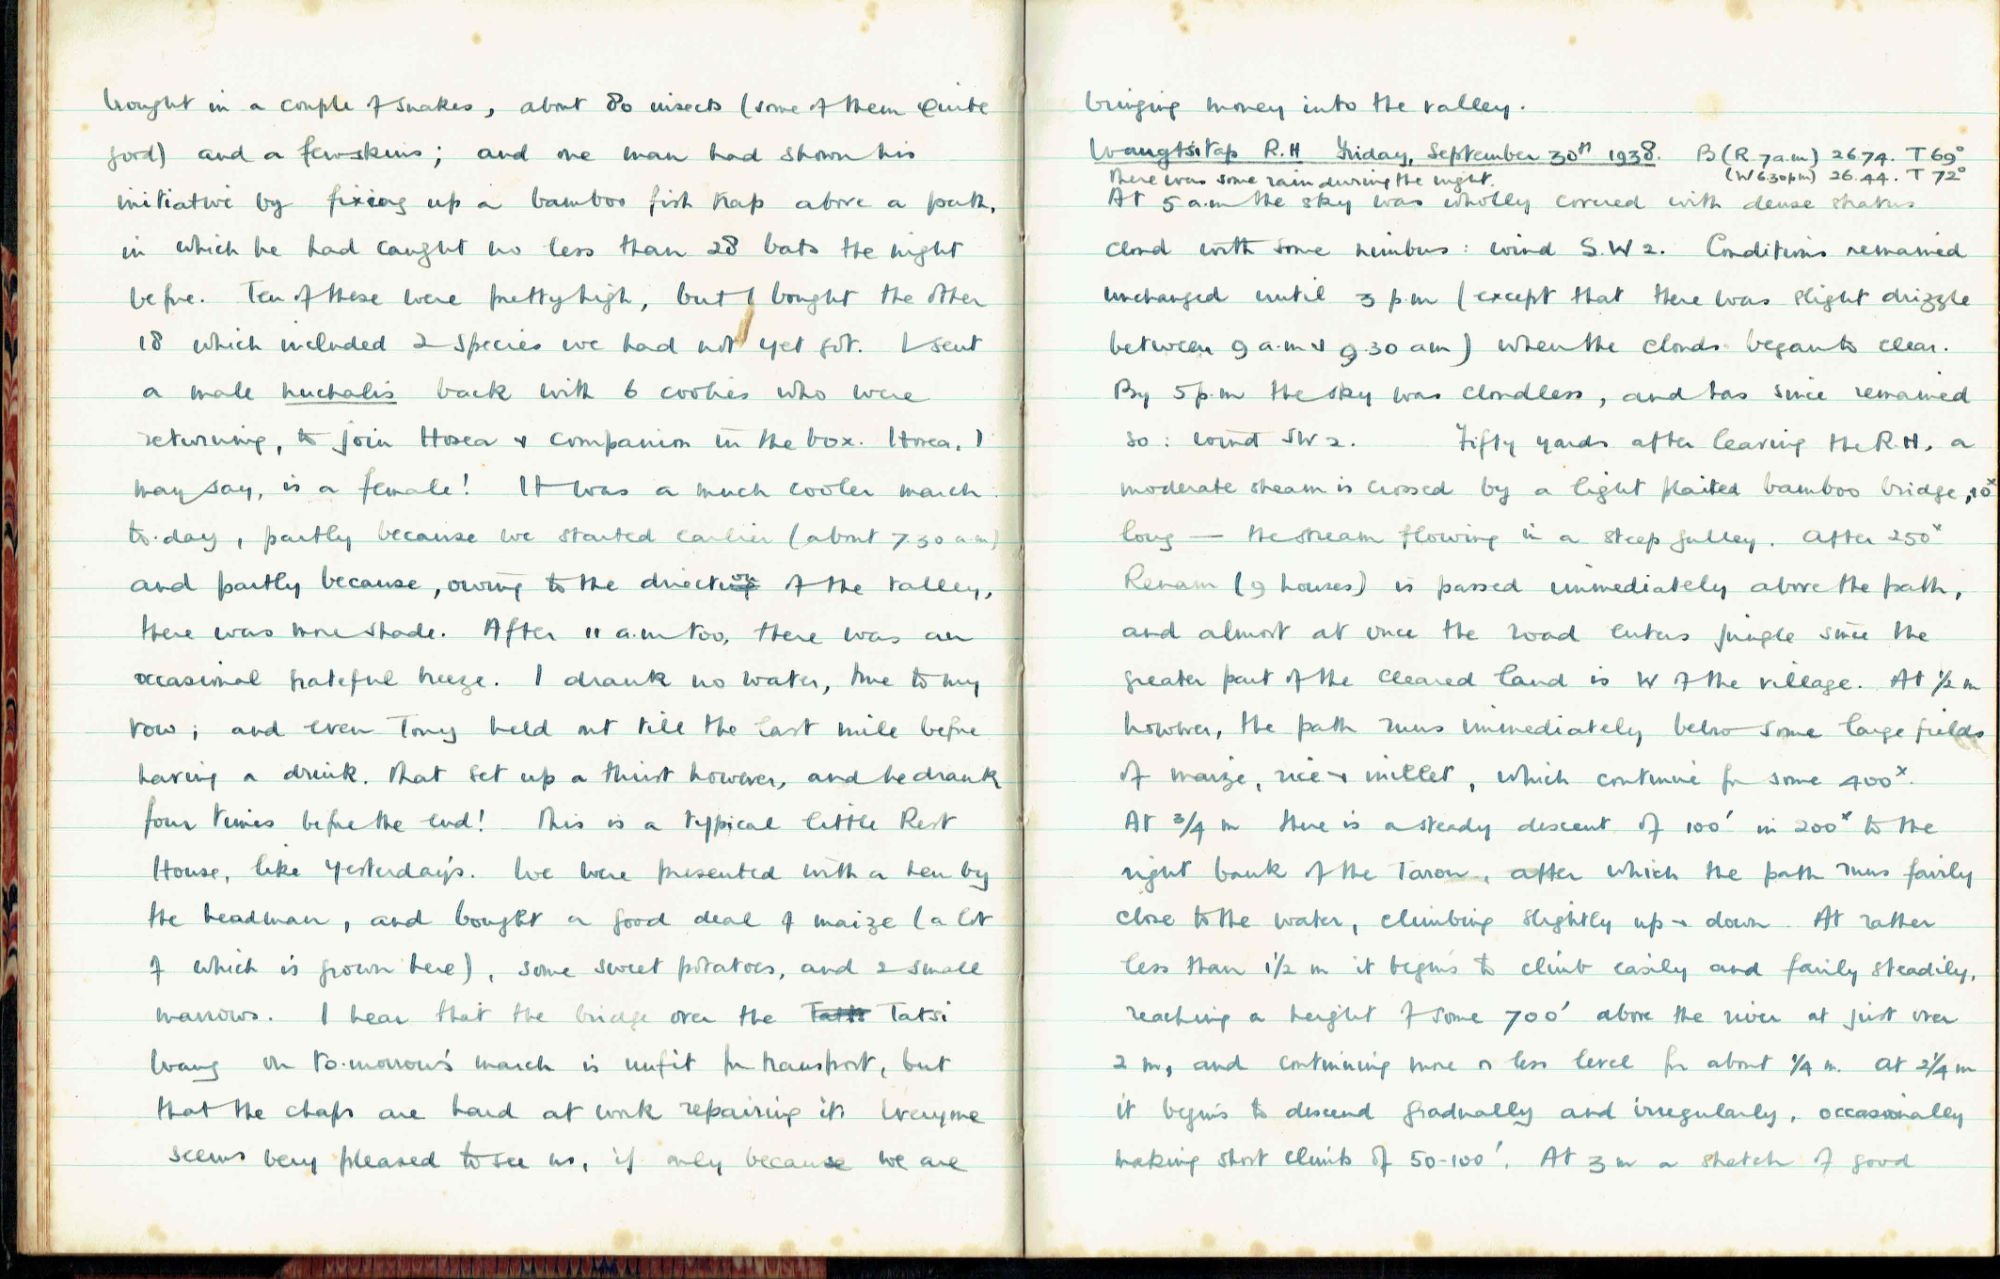 brought in a couple of snakes, about 80 insects (some of them quite
good) and a few skins; and one man had shown his
initiative by fixing up a bamboo fish trap above a path,
in which he had caught no less than 28 bats the night
before. Ten of these were pretty high, but I bought the other
18 which included 2 species we had not yet got. I sent
a male nuchalis back with 6 coolies who were
returning, to join Hosea & companion in the box. Hosea, I
may say, is a female! It was a much cooler march
to-day, partly because we started earlier (about 7.30 a.m)
and partly because, owing to the direction of the valley,
there was more shade. After 11 a.m too, there was an
occasional grateful breeze. I drank no water, true to my
vow; and even Tony held out till the last mile before
having a drink. That set up a thirst however, and he drank
four times before the end! This is a typical little Rest
House, like yesterday's. We were presented with a hen by
the headman, and bought a good deal of maize (a lot
of which is grown here), some sweet potatoes, and 2 small
marrows. I hear that the bridge over the Tatsi
Wang on to-morrow's march is unfit for transport, but
that the chaps are hard at work repairing it. Everyone
seems very pleased to see us, if only because we are
bringing money into the valley.
Wangtsitap R.H Friday, September 30th 1938. B (R. 7 a.m) 26.74. T 69°
(W 6.30pm) 26.44. T 72°
There was some rain during the night.
At 5 a.m the sky was wholly covered with dense stratus
cloud with some nimbus: wind S.W 2. Conditions remained
unchanged until 3 p.m (except that there was slight drizzle
between 9 a.m & 9.30 am) when the clouds began to clear.
By 5 p.m the sky was cloudless, and has since remained
so: wind SW 2. Fifty yards after leaving the R.H. a
moderate stream is crossed by a light plaited bamboo bridge, 10ˣ
long — the stream flowing in a steep gulley. After 250ˣ
Renam (9 houses) is passed immediately above the path,
and almost at once the road enters jungle since the
greater part of the cleared land is W of the village. At 1/2 m
however, the path runs immediately below some large fields
of maize, rice & millet, which continue for some 400ˣ.
At 3/4 m there is a steady descent of 100' in 200ˣ to the
right bank of the Taron, after which the path runs fairly
close to the water, climbing slightly up & down. At rather
less than 1 1/2 m it begins to climb easily and fairly steadily,
reaching a height of some 700' above the river at just over
2 m, and continuing more or less level for about 1/4 m. At 2 1/4 m
it begins to descend gradually and irregularly, occasionally
making short climbs of 50-100'. At 3 m a stretch of good